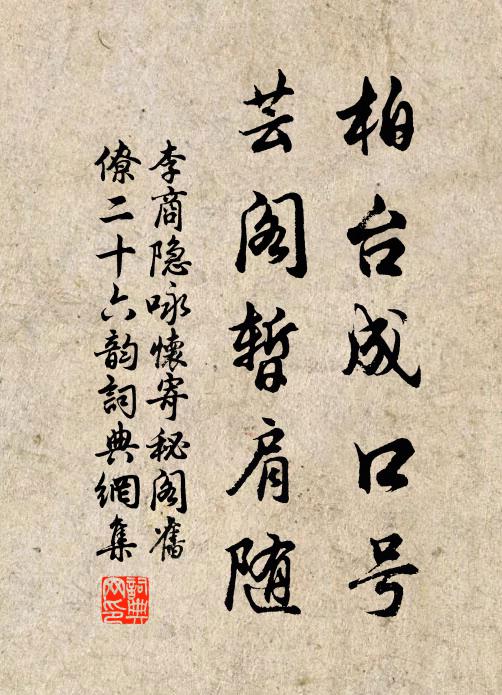 柏台成口号
芸阁暂肩随
李商隐咏懷寄秘阁舊
僚二十六韵詞典網集
詞典网印